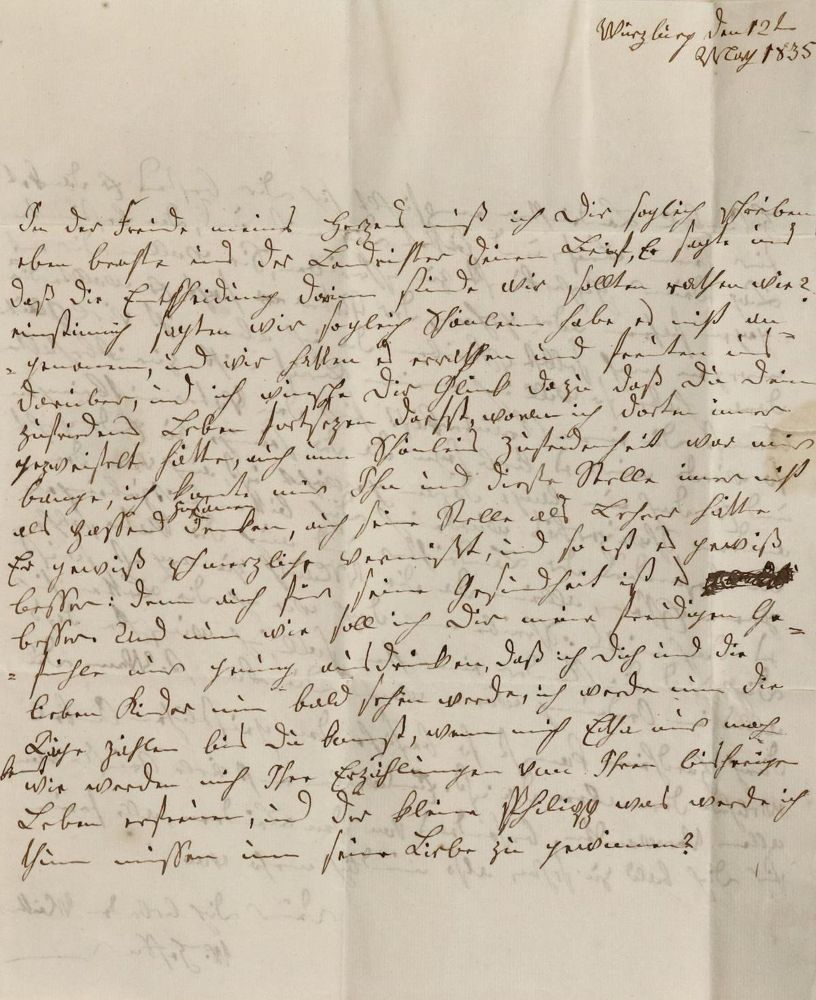 Würzburg den 12t
May 1835
In der Freude meines Herzens muß ich Dir soglich schreiben
eben brachte uns der Landrichter deinen Brief, Er sagte uns
daß die Entscheidung darinn stünde wir sollten rathen wie?
einstimmig sagten wir soglich Schönlein habe es nicht an-
-genomen, und wir hatten es errathen und freuten uns
darüber, und ich wünsche Dir Glück dazu daß Du dein
zufriedenes Leben fortsezen darfst, woran ich dorten immer
gezweifelt hätte, auch um Schönleins Zufriedenheit war mir
bange, ich konte mir Ihn und diese Stelle imer nicht
als passend zusamen denken, auch seine Stelle als Lehrer hätte
Er gewiß schmerzlich vermißt, und so ist es gewiß
besser: denn auch für seine Gesundheit ist es
besser Und nun wie soll ich Dir meine freudigen Ge-
-fühle nur genug ausdrüken, daß ich Dich und die
lieben Kinder nun bald sehen werde, ich werde nun die
Täge zählen bis Du komst, wenn nich nur nach
wie werden mich Ihre Erzählungen von Ihren bisherigen
Leben erfreuen, und der kleine Philipp was werde ich
thun müssen um seine Liebe zu gewinnen?